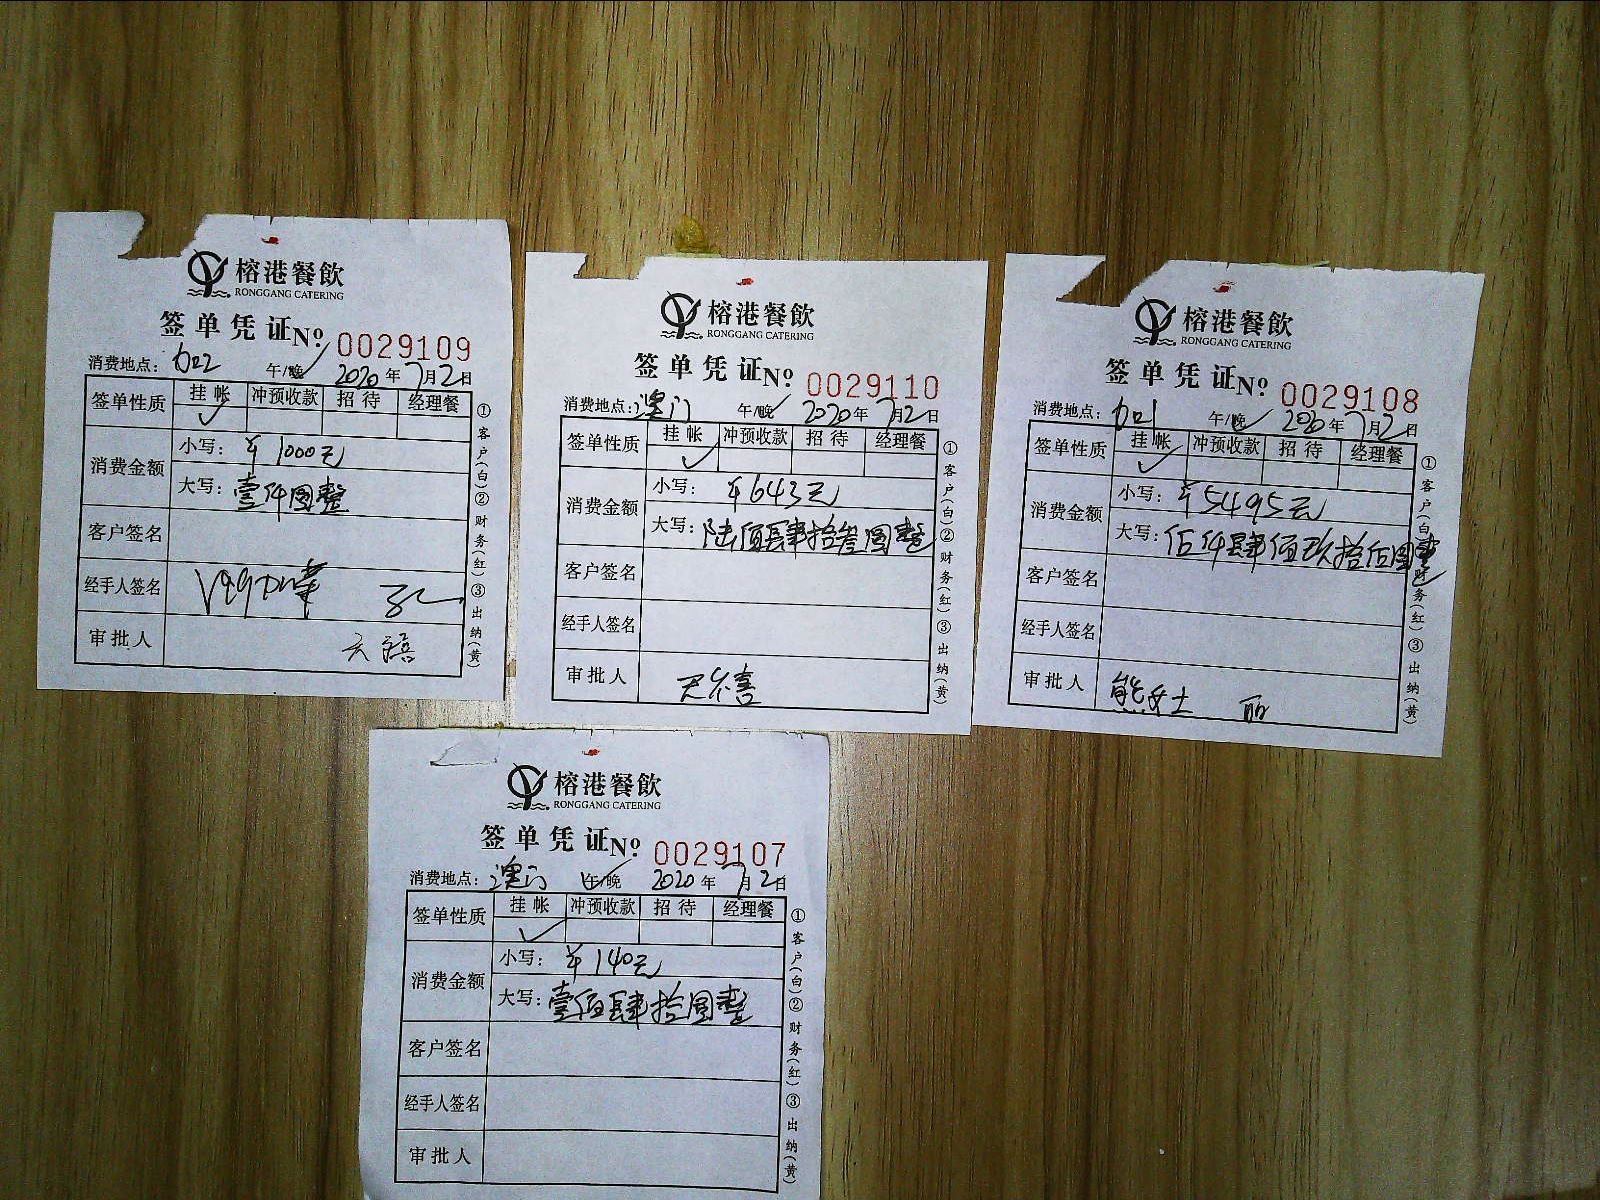 榕港餐飲
RONGGANG CATERING
签单凭证 No 0029109
消费地点: 午/晚 2020年7月2日
签单性质 挂帐 冲预收款 招待 经理餐
✓
消费金额 小写: ¥1000元
大写: 壹仟圆整
客户签名
经手人签名
审批人
①客户(白)②财务(红)③出纳(黄)
榕港餐飲
RONGGANG CATERING
签单凭证 No 0029110
消费地点: 澳门 午/晚 2020年7月2日
签单性质 挂帐 冲预收款 招待 经理餐
✓
消费金额 小写: ¥643元
大写: 陆佰肆拾叁圆整
客户签名
经手人签名
审批人
①客户(白)②财务(红)③出纳(黄)
榕港餐飲
RONGGANG CATERING
签单凭证 No 0029108
消费地点: 午/晚 2020年7月2日
签单性质 挂帐 冲预收款 招待 经理餐
✓
消费金额 小写: ¥5495元
大写: 伍仟肆佰玖拾伍圆整
客户签名
经手人签名
审批人 熊女士
①客户(白)②财务(红)③出纳(黄)
榕港餐飲
RONGGANG CATERING
签单凭证 No 0029107
消费地点: 澳门 午/晚 2020年7月2日
签单性质 挂帐 冲预收款 招待 经理餐
✓
消费金额 小写: ¥140元
大写: 壹佰肆拾圆整
客户签名
经手人签名
审批人
①客户(白)②财务(红)③出纳(黄)